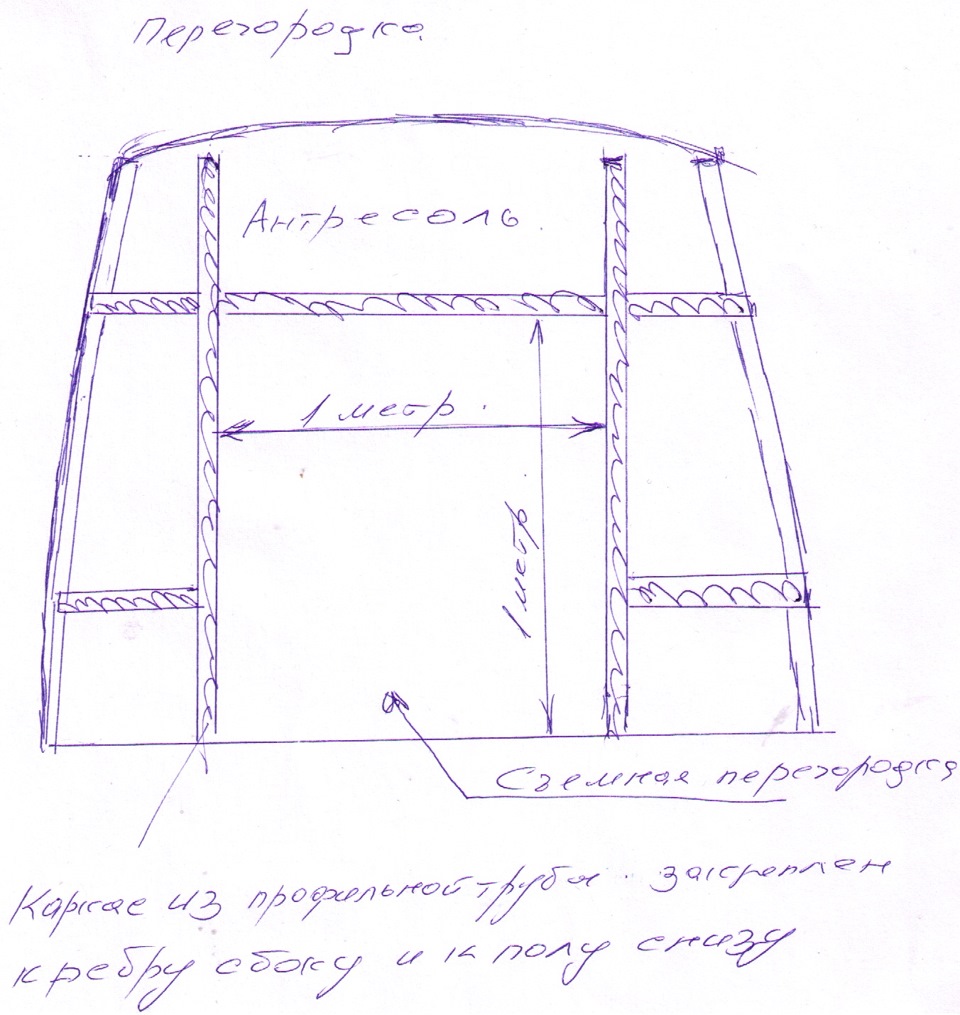 Перегородка
Антресоль
1 метр
1 метр
Сземная перегородка
Каркас из профильной трубы. закреплен
к ребру сбоку и к полу снизу